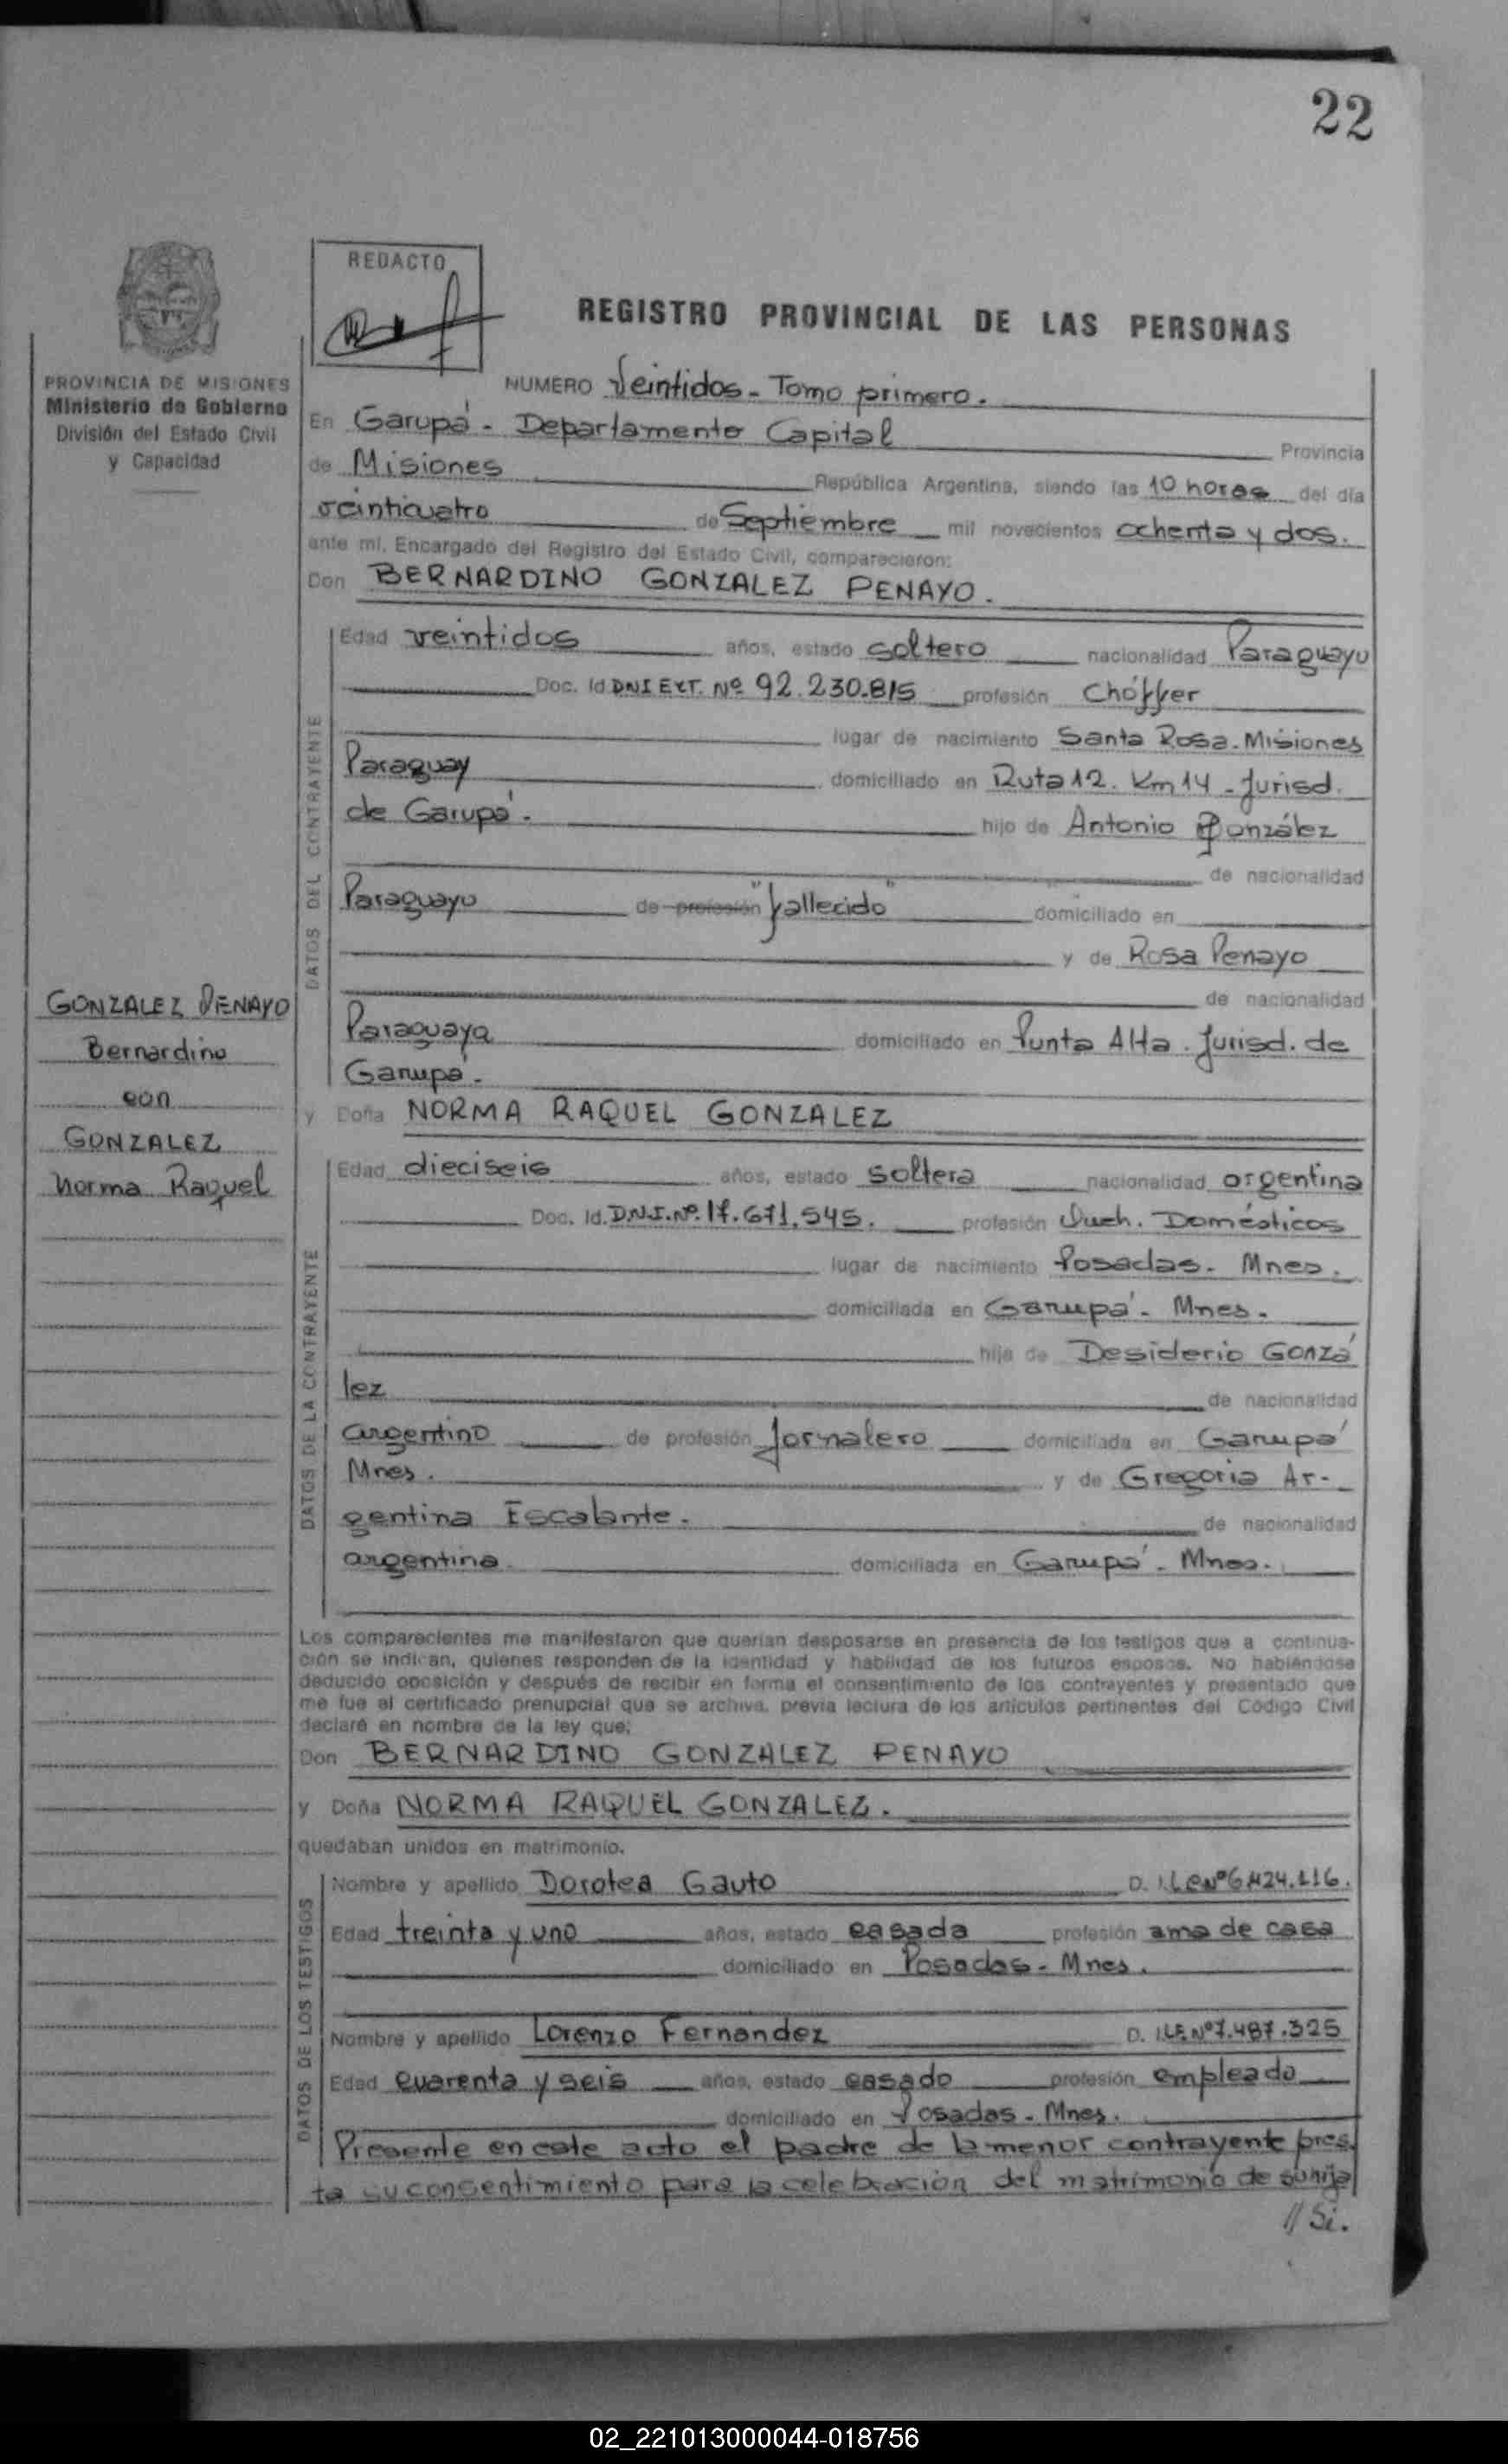 22
REDACTO
REGISTRO PROVINCIAL DE LAS PERSONAS
PROVINCIA DE MISIONES
Ministerio de Gobierno
División del Estado Civil
y Capacidad
NUMERO Veintidos - Tomo primero.
En Garupá - Departamento Capital Provincia
de Misiones República Argentina, siendo las 10 horas del día
veinticuatro de Septiembre mil novecientos ochenta y dos.
ante mí, Encargado del Registro del Estado Civil, comparecieron:
Don BERNARDINO GONZALEZ PENAYO.
DATOS DEL CONTRAYENTE
Edad veintidos años, estado soltero nacionalidad Paraguayo
Doc. Id DNI EXT. Nº 92.230.815 profesión Chóffer
lugar de nacimiento Santa Rosa. Misiones
Paraguay domiciliado en Ruta 12. Km 14 - Jurisd.
de Garupá. hijo de Antonio González
de nacionalidad
Paraguayo de profesión "fallecido" domiciliado en
y de Rosa Penayo
de nacionalidad
Paraguaya domiciliado en Punta Alta. Jurisd. de
Garupá.
GONZALEZ PENAYO
Bernardino
con
GONZALEZ
Norma Raquel
y Doña NORMA RAQUEL GONZALEZ
DATOS DE LA CONTRAYENTE
Edad dieciseis años, estado soltera nacionalidad argentina
Doc. Id. D.N.I. Nº. 17.671.545. profesión Domésticos
lugar de nacimiento Posadas. Mnes.
domiciliada en Garupá - Mnes.
hija de Desiderio Gonzá
lez de nacionalidad
argentino de profesión Jornalero domiciliada en Garupá
Mnes. y de Gregoria Ar-
gentina Escalante. de nacionalidad
argentina domiciliada en Garupá - Mnes.
Los comparecientes me manifestaron que querían desposarse en presencia de los testigos que a continua-
ción se indican, quienes responden de la identidad y habilidad de los futuros esposos. No habiéndose
deducido oposición y después de recibir en forma el consentimiento de los contrayentes y presentado que
me fue el certificado prenupcial que se archiva, previa lectura de los artículos pertinentes del Código Civil
declaré en nombre de la ley que:
Don BERNARDINO GONZALEZ PENAYO
y Doña NORMA RAQUEL GONZALEZ.
quedaban unidos en matrimonio.
DATOS DE LOS TESTIGOS
Nombre y apellido Dorotea Gauto D. I.
Edad treinta y uno años, estado casada profesión ama de casa
domiciliado en Posadas - Mnes.
Nombre y apellido Lorenzo Fernandez D. I. LE. Nº 7.487.325
Edad cuarenta y seis años, estado casado profesión empleado
domiciliado en Posadas - Mnes.
Presente en este acto el padre de la menor contrayente pres
ta su consentimiento para la celebración del matrimonio de su hija
// Si.
02_221013000044-018756